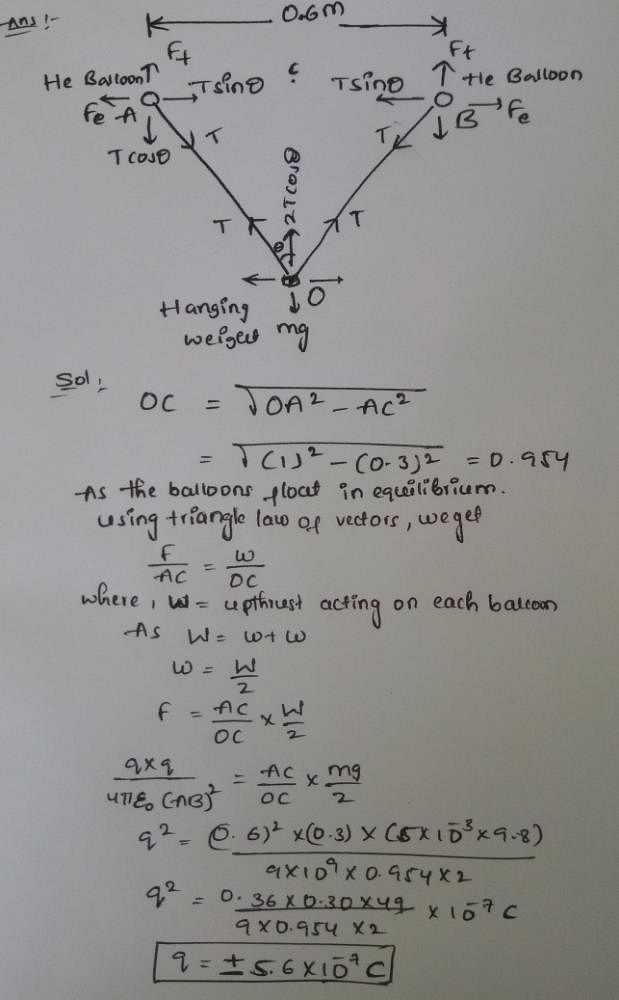 Ans :-
0.6m
F+
F+
He Balloon
Tsinθ
c
Tsinθ
He Balloon
Fe
A
B
Fe
Tcosθ
T
T
2Tcosθ
T
T
θ
O
Hanging
mg
Sol :
OC = √OA² - AC²
= √(1)² - (0.3)² = 0.954
As the balloons float in equilibrium.
using triangle law of vectors, we get
F/AC = w/OC
where, w = upthrust acting on each balloon
As W = w + w
w = W/2
F = AC/OC × W/2
q×q/4πε₀(AB)² = AC/OC × mg/2
q² = (0.6)² × (0.3) × (5×10⁻³×9.8)/9×10⁹ × 0.954 × 2
q² = 0.36 × 0.30 × 49/9 × 0.954 × 2 × 10⁻⁷ C
q = ± 5.6 × 10⁻⁷ C